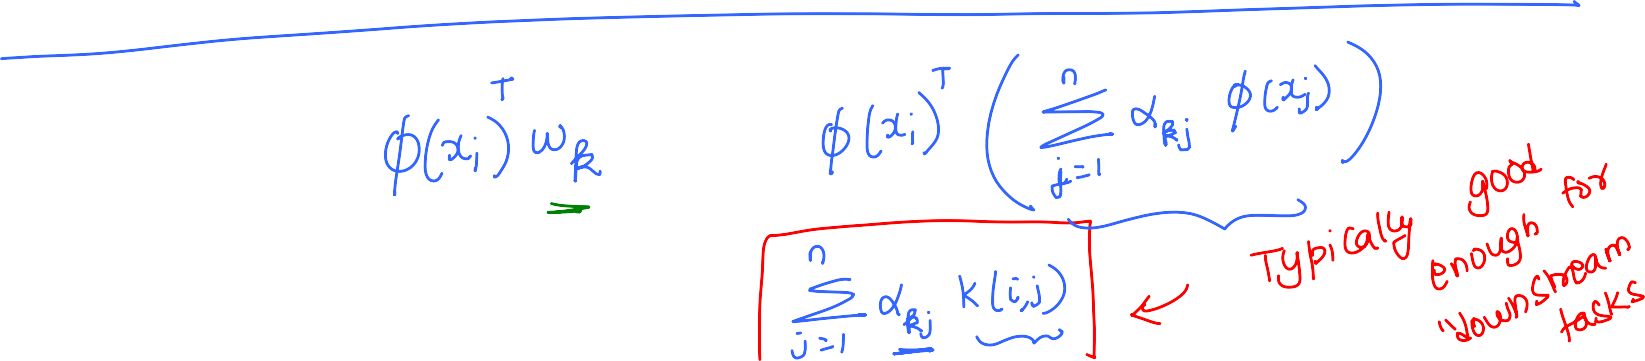 ϕ(xᵢ)ᵀ wₖ    ϕ(xᵢ)ᵀ ( ∑ⁿⱼ₌₁ αₖⱼ ϕ(xⱼ) )
∑ⁿⱼ₌₁ αₖⱼ K(i,j)
Typically good
enough for
"downstream
tasks